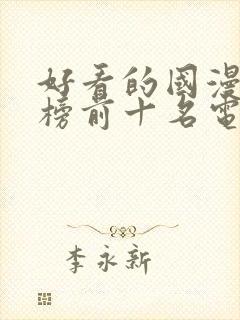 好看的國漫
榜前十名電
李永新